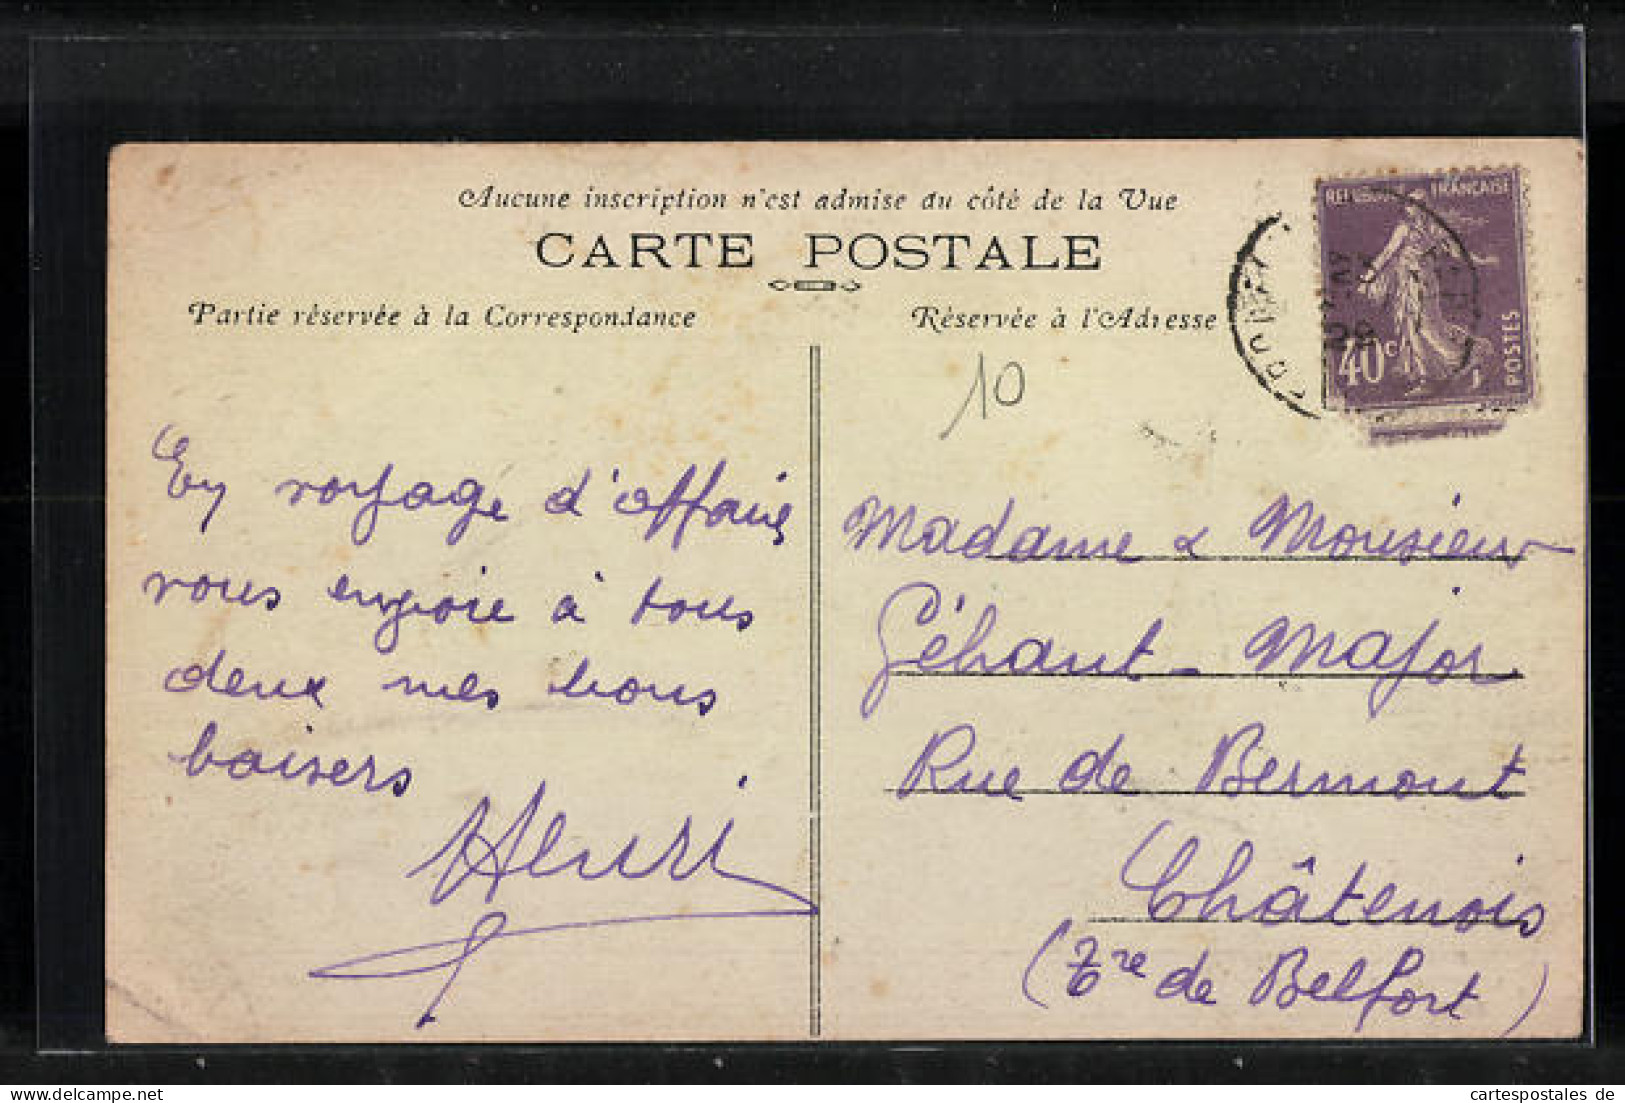 Aucune inscription n'est admise du côté de la Vue
CARTE POSTALE
Partie réservée à la Correspondance
Réservée à l'Adresse
FRANÇAISE
40c
POSTES
10
En voyage d'affaires
vous envoie à tous
deux mes bons
baisers
Henri
Madame & Monsieur
Géhant-Major
Rue de Bermont
Châtenois
(Tre de Belfort)
cartespostales de